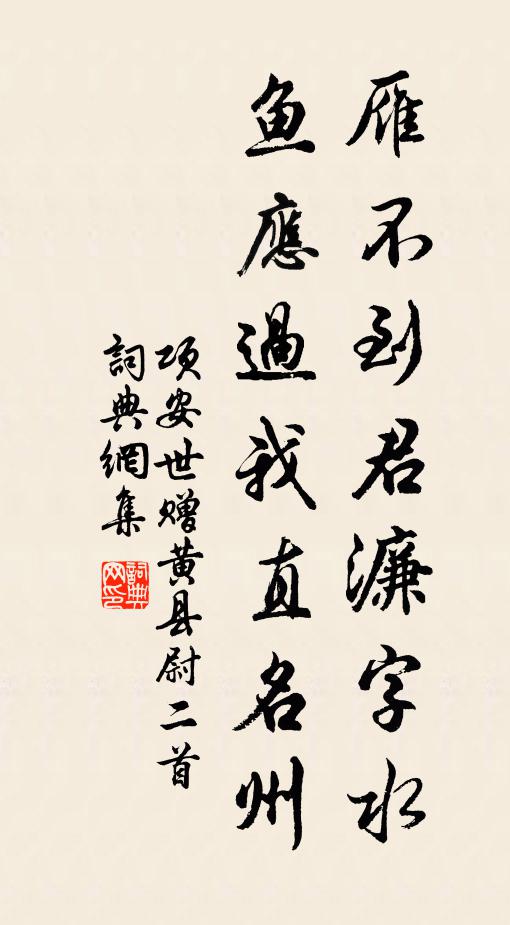 雁不到君濂字水
鱼應過我直名州
项安世赠黄县尉二首
詞典網集
詞典網印